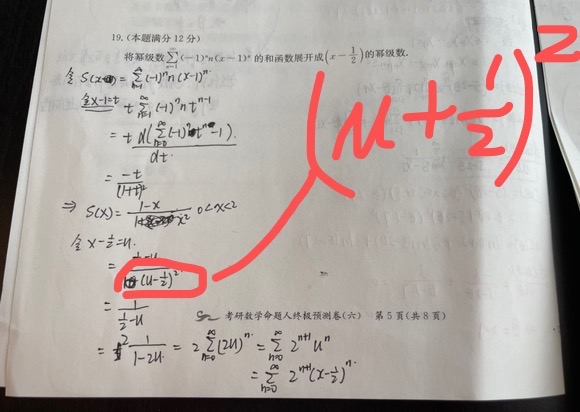 19.(本题满分12分)
将幂级数∑_{n=1}^{∞}(-1)ⁿn(x-1)ⁿ的和函数展开成(x-1/2)的幂级数.
令 S(x)=∑_{n=1}^{∞}(-1)ⁿn(x-1)ⁿ
令x-1=t t∑_{n=1}^{∞}(-1)ⁿn tⁿ⁻¹
= t d(∑_{n=0}^{∞}(-1)ⁿtⁿ-1)/dt.
= -t/(1+t)²
⇒ S(x)= (1-x)/x² 0<x<2
令 x-1/2=u.
= (1/2-u)/(u-1/2)²
(u+1/2)²
= 1/(1/2-u)
= 2 1/(1-2u) = 2∑_{n=0}^{∞}(2u)ⁿ = ∑_{n=0}^{∞} 2ⁿ⁺¹uⁿ
= ∑_{n=0}^{∞} 2ⁿ⁺¹(x-1/2)ⁿ.
考研数学命题人终极预测卷(六) 第5页(共8页)